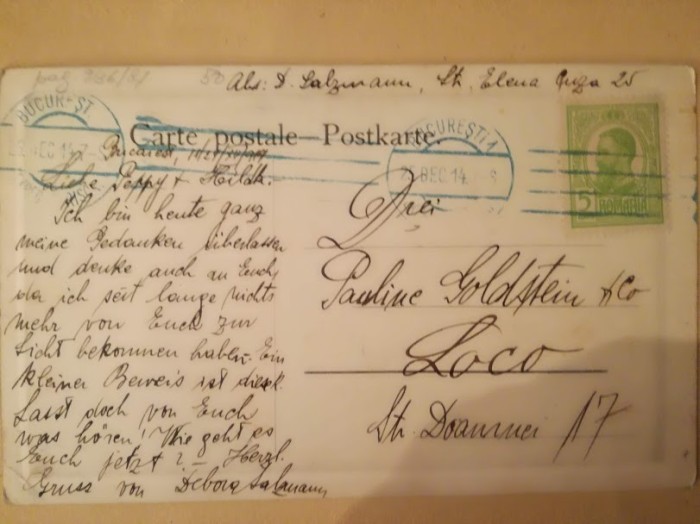 Abs: D. Salzmann, Str. Elena Cuza 25
BUCUREST.
Carte postale—Postkarte.
BUCURESTI 1
25 DEC 14
ROMANIA
Bucarest,
Liebe Peppy + Hilda.
Ich bin heute ganz
meine Gedanken überlassen
und denke auch an Euch,
da ich seit lange nichts
mehr von Euch zur
Sicht bekommen haben. Ein
kleiner Beweis ist diese K.
Lasst doch von Euch
was hören! Wie geht es
Euch jetzt? – Herzl.
Gruss von Debora Salzmann
Drei
Pauline Goldstein & Co
Loco
Str. Doamnei 17